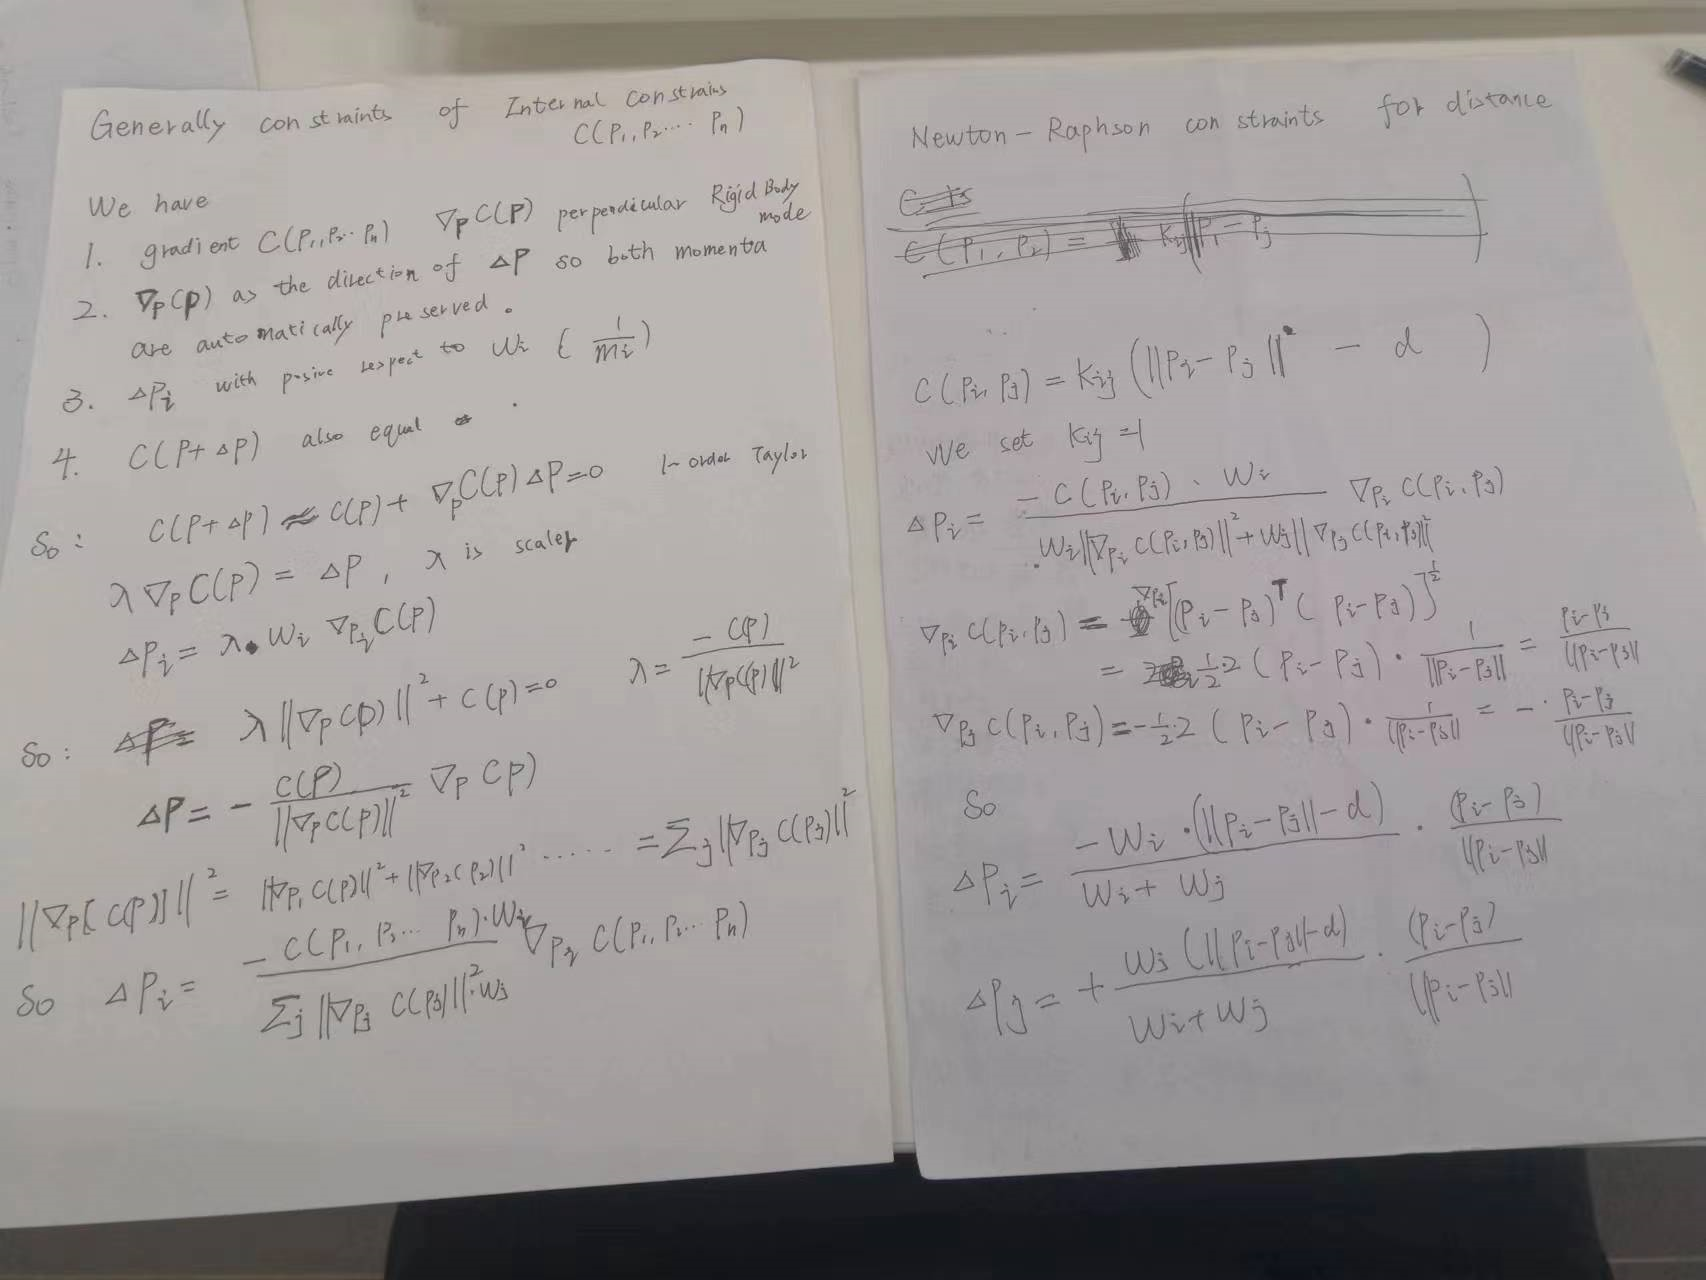 Generally constraints of Internal constrains
C(P₁, P₂ ···· Pₙ)
We have
1. gradient C(P₁, P₂·· Pₙ) ∇ₚC(P) perpendicular Rigid Body mode
2. ∇ₚC(P) as the direction of ΔP so both momenta
are automatically preserved.
3. ΔPᵢ with posive respect to Wᵢ ( 1/mᵢ )
4. C(P+ΔP) also equal
So: C(P+ΔP) ≈ C(P) + ∇ₚC(P) ΔP=0 1-order Taylor
λ∇ₚC(P) = ΔP, λ is scaler
ΔPᵢ = λ·Wᵢ ∇ₚᵢC(P)
So: λ||∇ₚC(P)||² + C(P)=0 λ = -C(P) / ||∇ₚC(P)||²
ΔP = - C(P) / ||∇ₚC(P)||² ∇ₚ C(P)
||∇ₚ[C(P)]||² = ||∇ₚ₁C(P)||² + ||∇ₚ₂C(P₂)||² ····· = Σⱼ||∇ₚⱼ C(Pⱼ)||²
So ΔPᵢ = - C(P₁, P₂··· Pₙ)·Wᵢ / Σⱼ||∇ₚⱼ C(Pⱼ)||²·Wⱼ ∇ₚᵢ C(P₁, P₂··· Pₙ)
Newton-Raphson constraints for distance
C(P₁, P₂) = Kᵢⱼ(||P₁ - Pⱼ
C(Pᵢ, Pⱼ) = Kᵢⱼ (||Pᵢ - Pⱼ|| - d )
We set Kᵢⱼ =1
ΔPᵢ = -C(Pᵢ, Pⱼ) · Wᵢ / Wᵢ||∇ₚᵢ C(Pᵢ, Pⱼ)||² + Wⱼ||∇ₚⱼ C(Pᵢ, Pⱼ)||² ∇ₚᵢ C(Pᵢ, Pⱼ)
∇ₚᵢ C(Pᵢ, Pⱼ) = ∇ₚᵢ[(Pᵢ - Pⱼ)ᵀ (Pᵢ - Pⱼ)]^½
= ½·2 (Pᵢ - Pⱼ) · 1/||Pᵢ-Pⱼ|| = Pᵢ-Pⱼ / ||Pᵢ-Pⱼ||
∇ₚⱼ C(Pᵢ, Pⱼ) = -½·2 (Pᵢ - Pⱼ) · 1/||Pᵢ-Pⱼ|| = - · Pᵢ-Pⱼ / ||Pᵢ-Pⱼ||
So
ΔPᵢ = -Wᵢ·(||Pᵢ-Pⱼ||-d) / Wᵢ + Wⱼ · (Pᵢ-Pⱼ) / ||Pᵢ-Pⱼ||
ΔPⱼ = + Wⱼ(||Pᵢ-Pⱼ||-d) / Wᵢ+Wⱼ · (Pᵢ-Pⱼ) / ||Pᵢ-Pⱼ||